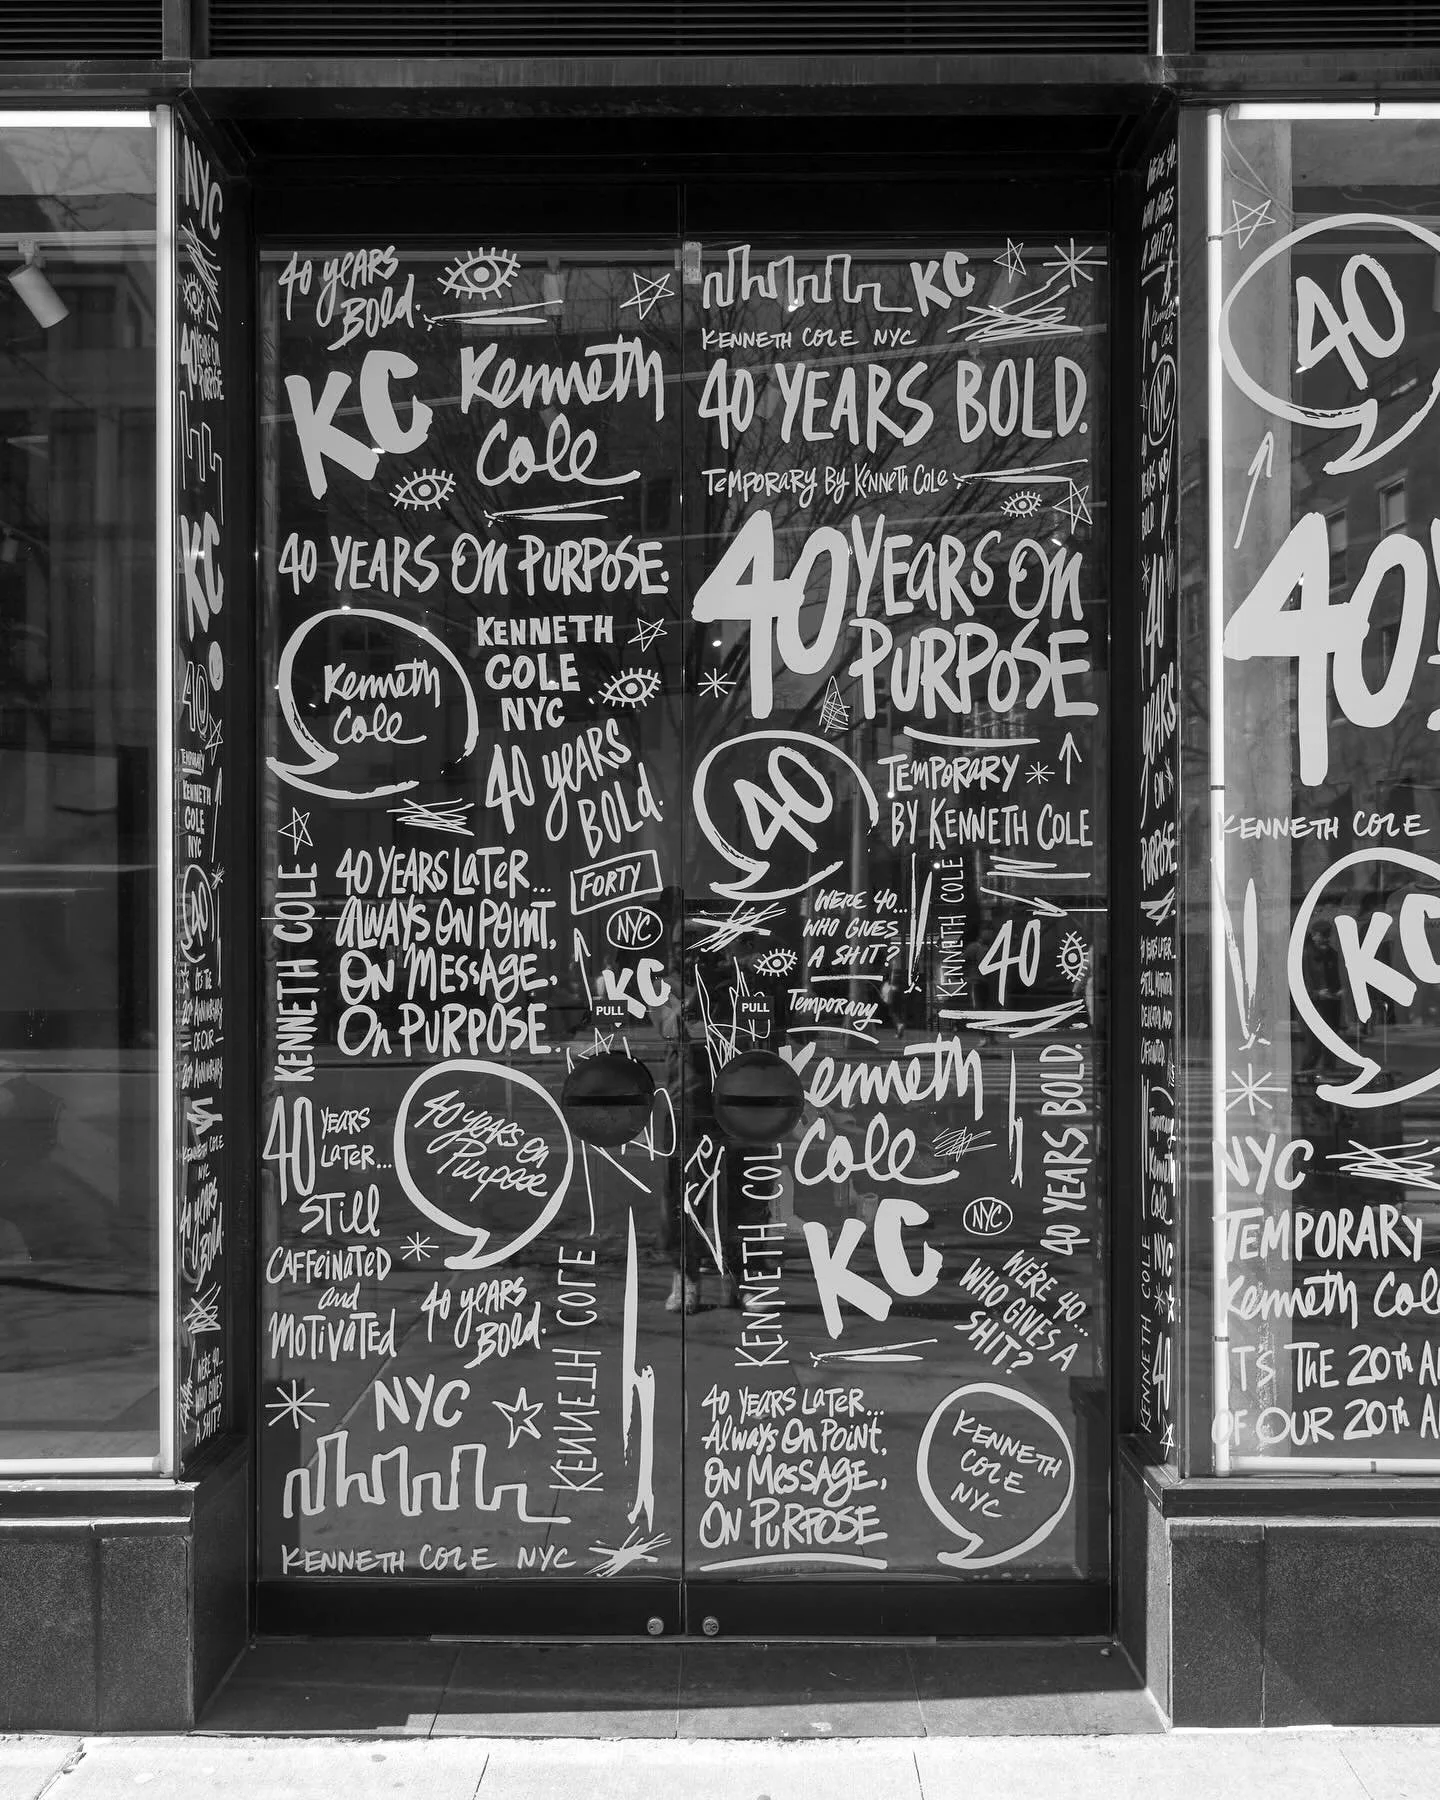 NYC
KC
40
TEMPORARY
KENNETH
COLE
NYC
40 yEARS
BOLd.
KC
Kenneth
Cole
40 YEARS ON PURPOSE.
Kenneth
Cole
KENNETH
COLE
NYC
40 yEARS
BOLd.
KENNETH COLE
40 YEARS LATER...
ALWAYS ON POINT,
ON MESSAGE,
On PURPOSE.
FORTY
NYC
KC
PULL
40 YEARS
LATER...
STILL
CAFFEINATED
and
MOTIVATED
40 YEARS ON
Purpose
40 yEARS
BOLd.
KENNETH COLE
NYC
KENNETH COLE NYC
KC
KENNETH COLE NYC
40 YEARS BOLD.
TEMPORARY BY KENNETH COLE
40 YEARS ON
PURPOSE
40
TEMPORARY
BY KENNETH COLE
WE'RE 40...
WHO GIVES
A SHIT?
KENNETH COLE
40
Temporary
PULL
Kenneth
Cole
40 YEARS BOLD.
KENNETH COL
KC
NYC
WE'RE 40...
WHO GIVES A
SHIT?
40 YEARS LATER...
ALWAYS ON POINT,
ON MESSAGE,
ON PURPOSE
KENNETH
COLE
NYC
WE'RE 40..
WHO GIVES
A SHIT?
NYC
40
YEARS
ON
PURPOSE
KENNETH COLE
NYC
40
40
40
KENNETH COLE
KC
NYC
TEMPORARY
Kenneth Col
IT'S THE 20th A
OF OUR 20th A